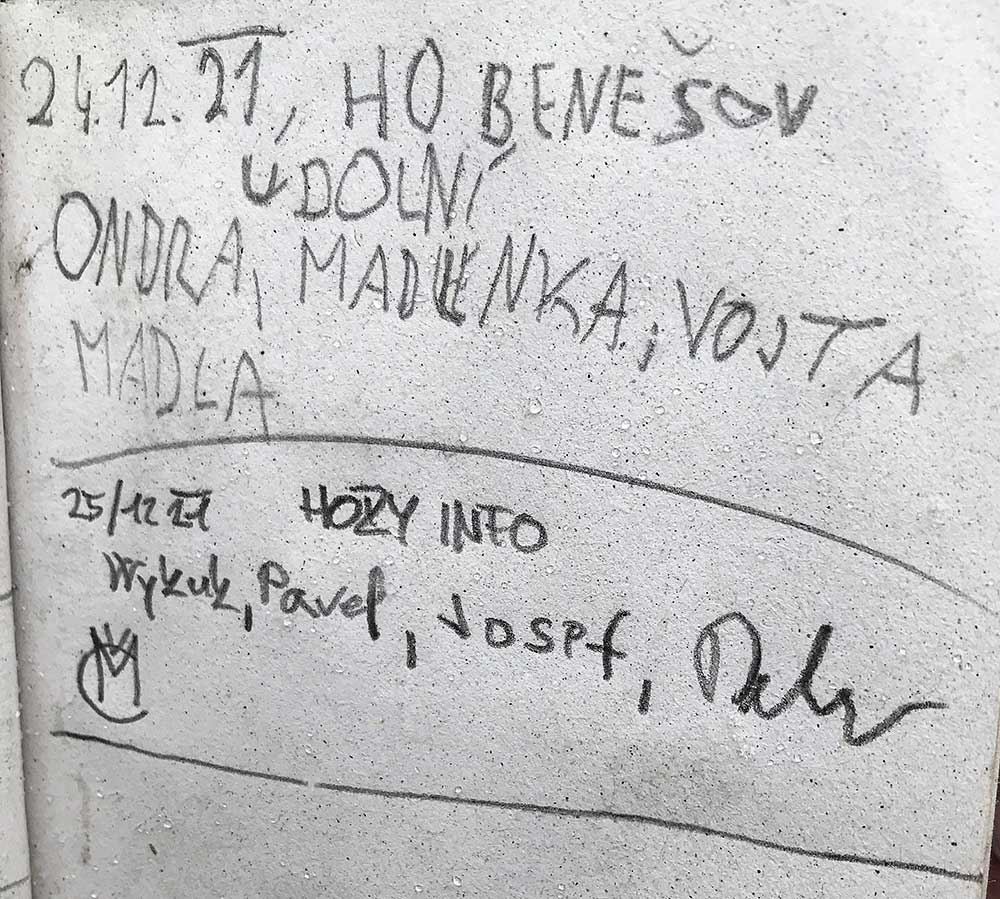 24.12.21, HO BENEŠOV
ÚDOLNÍ
ONDRA, MADLENKA, VOJTA
MADLA
25/12 21 HOZY INFO
Wykuk, Pavel, Josef,